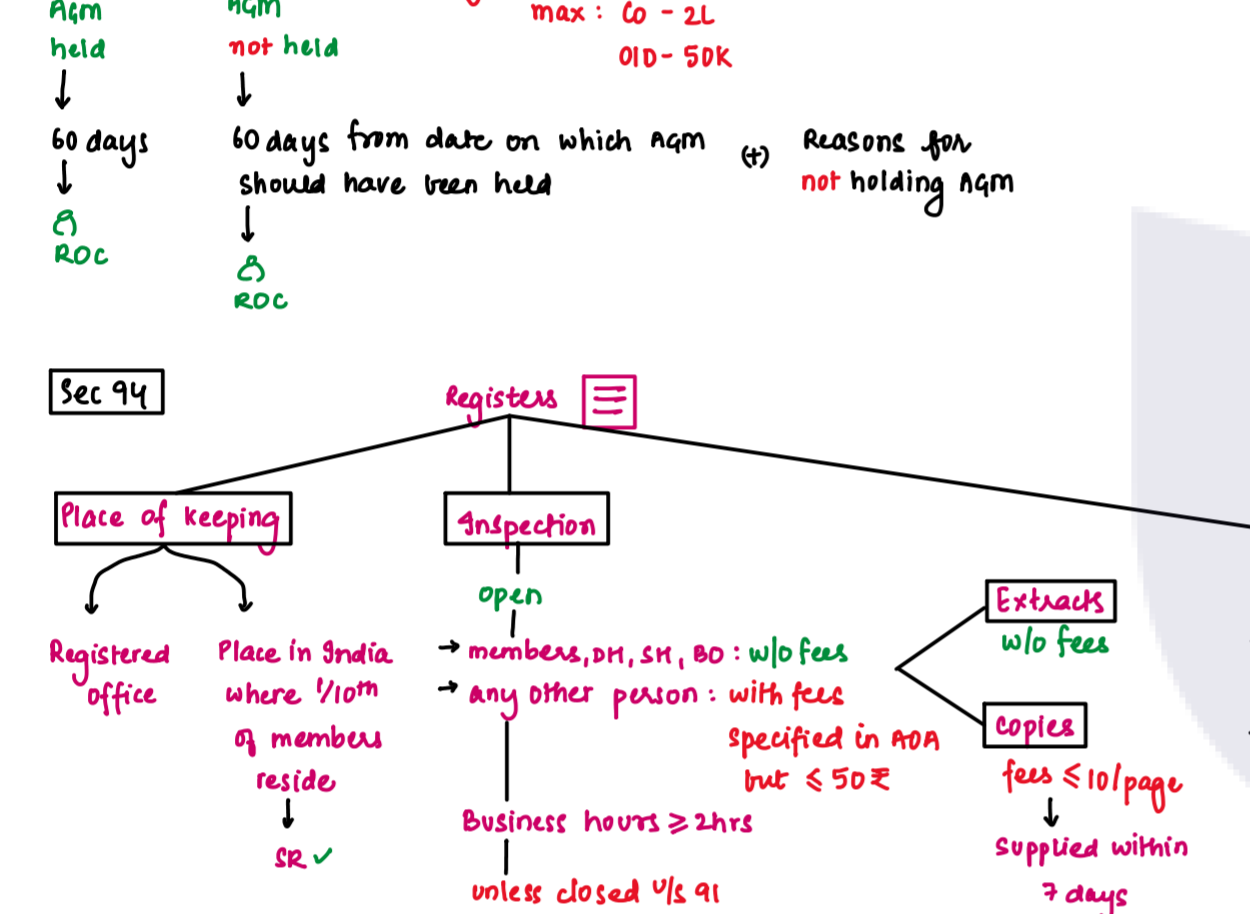 AGM
held
60 days
ROC
AGM
not held
60 days from date on which AGM
should have been held
ROC
(+)
Reasons for
not holding AGM
max : CO - 2L
OID - 50K
Sec 94
Registers
Place of keeping
Registered
office
Place in India
where 1/10th
of members
reside
SR ✓
Inspection
open
→ members, DH, SH, BO : w/o fees
→ any other person : with fees
specified in AOA
but ≤ 50₹
Business hours ≥ 2hrs
unless closed u/s 91
Extracts
w/o fees
Copies
fees ≤ 10/page
Supplied within
7 days